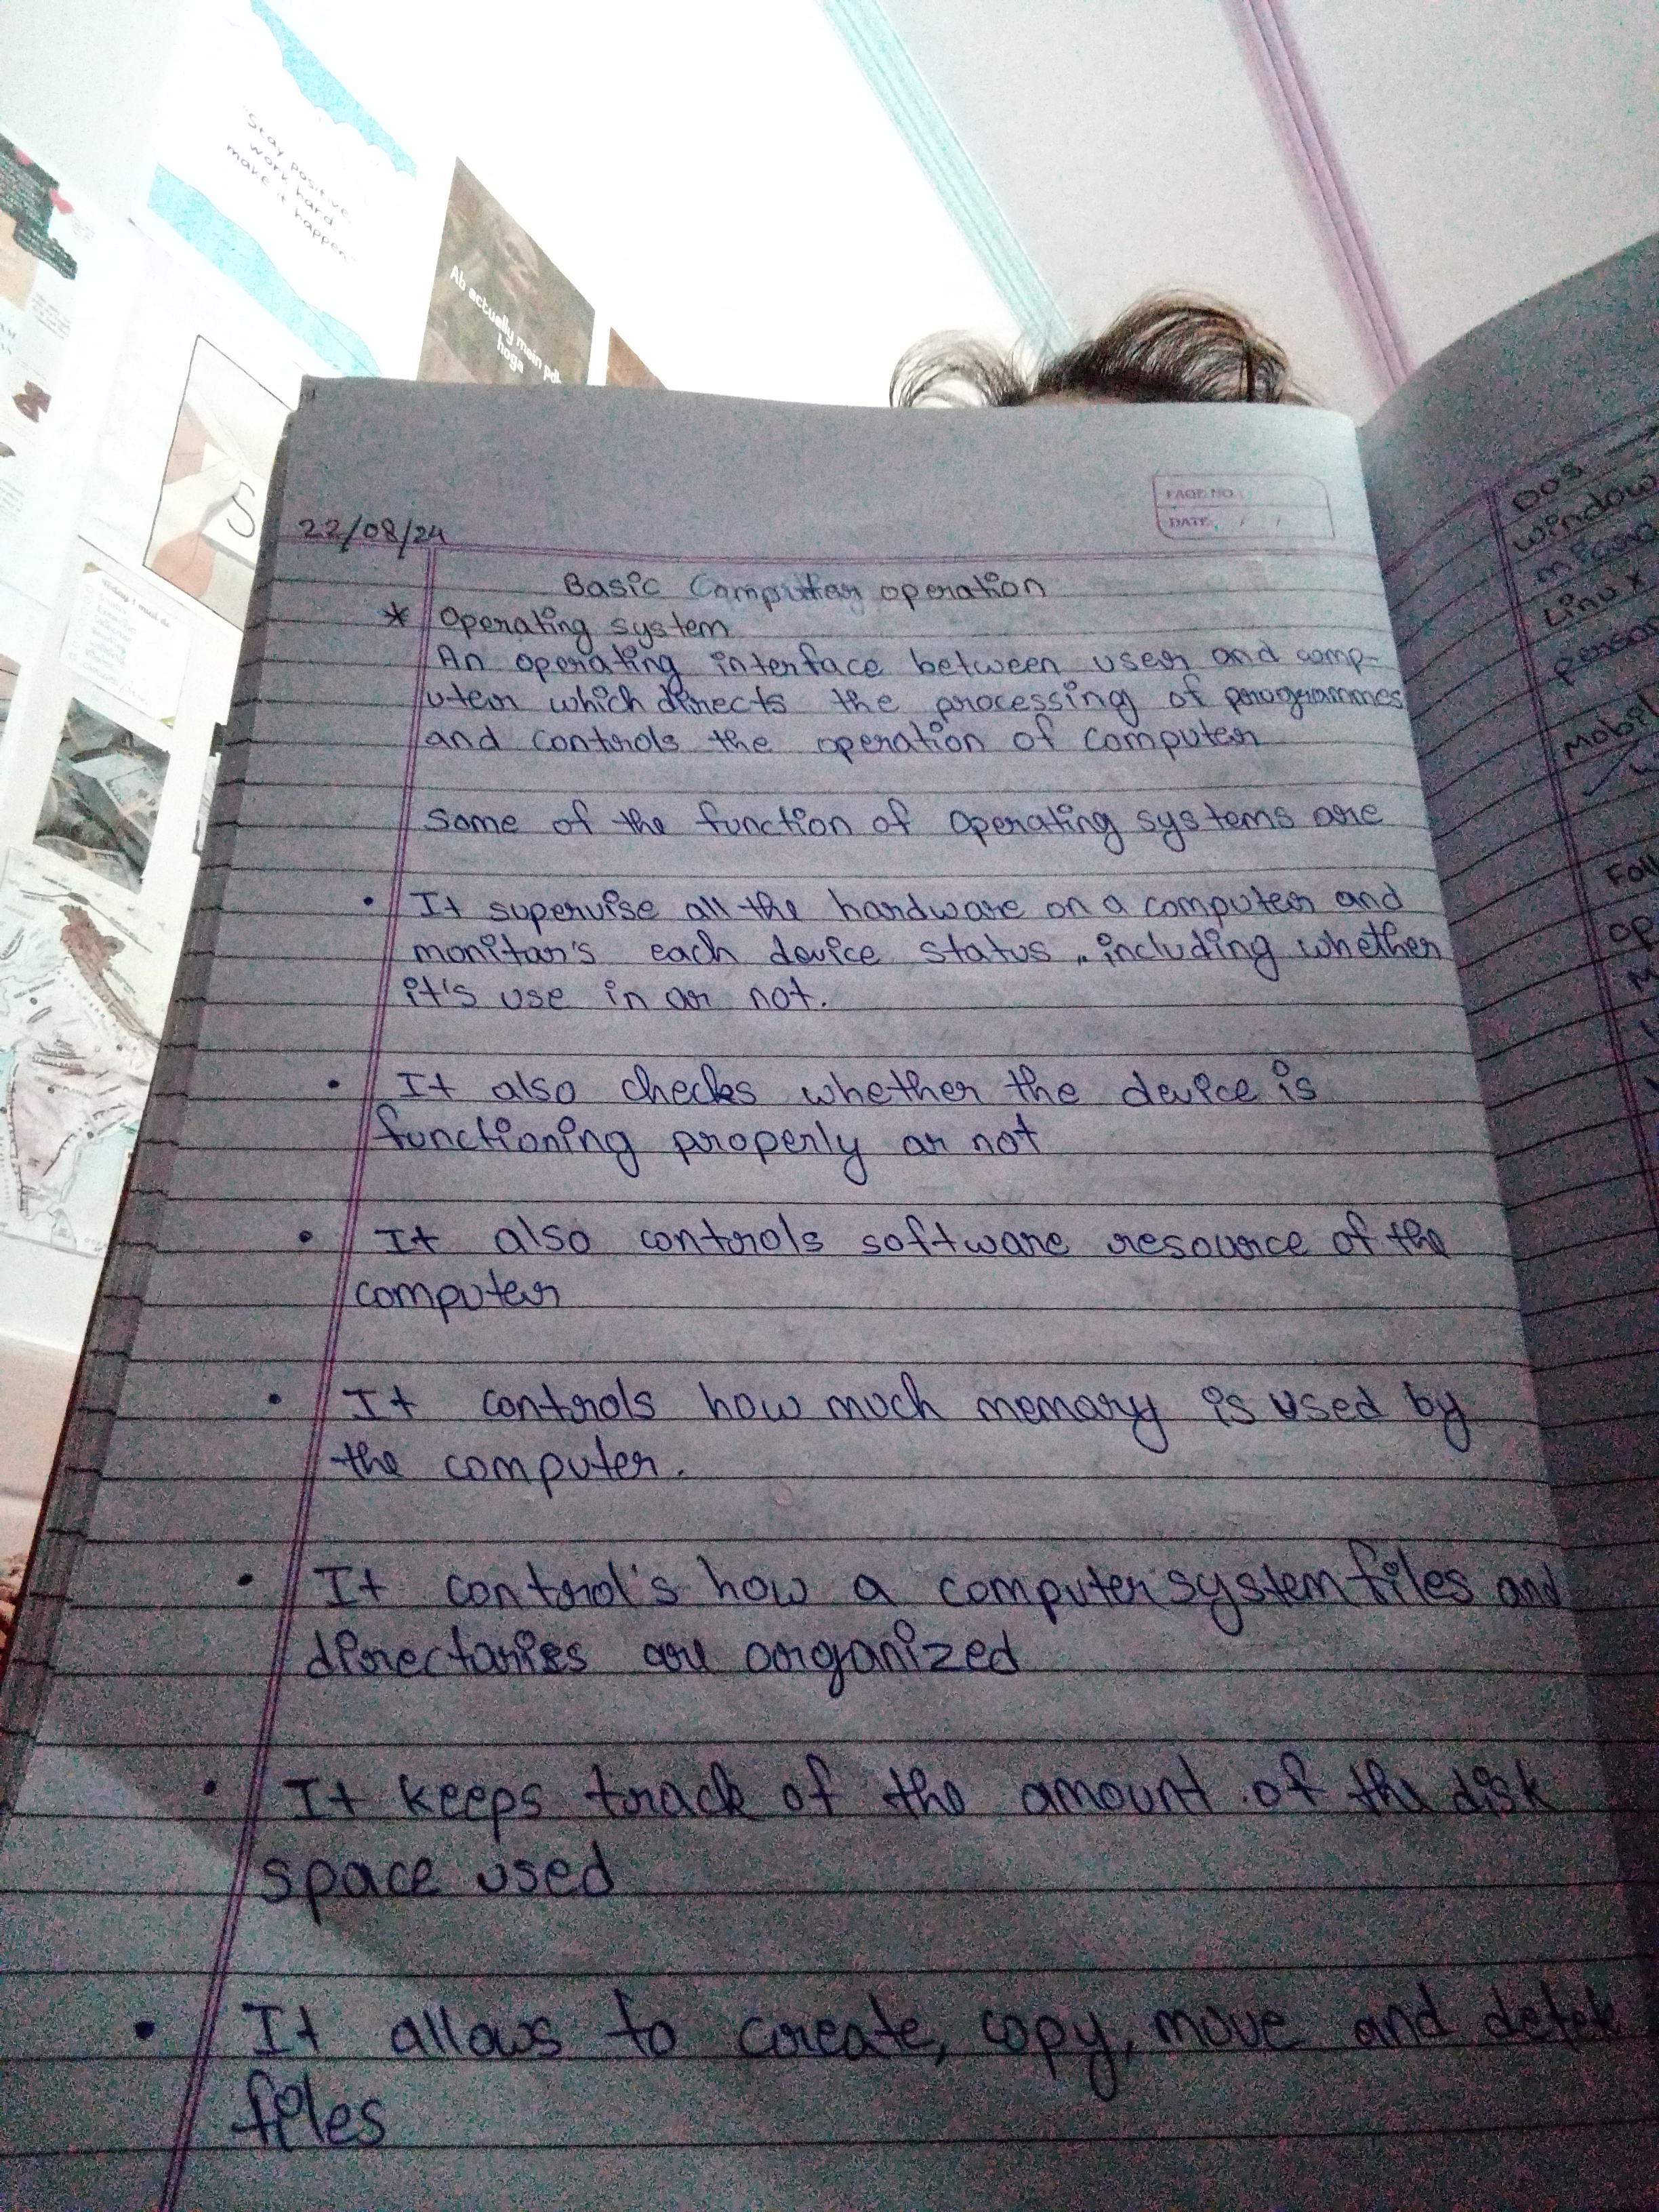 "Stay positive
work hard
make it happen"
Ab actually mein pdh
hoga
S
PAGE NO
DATE / /
22/08/24
Basic Computer operation
* Operating system
An operating interface between user and comp-
uter which directs the processing of programmes
and controls the operation of computer
Some of the function of operating systems are
• It supervise all the hardware on a computer and
monitor's each device status, including whether
it's use in or not.
• It also checks whether the device is
functioning properly or not
• It also controls software resource of the
computer
• It controls how much memory is used by
the computer.
• It control's how a computer system files and
directories are organized
• It keeps track of the amount of the disk
space used
• It allows to create, copy, move and
files
DOS
window
Linux